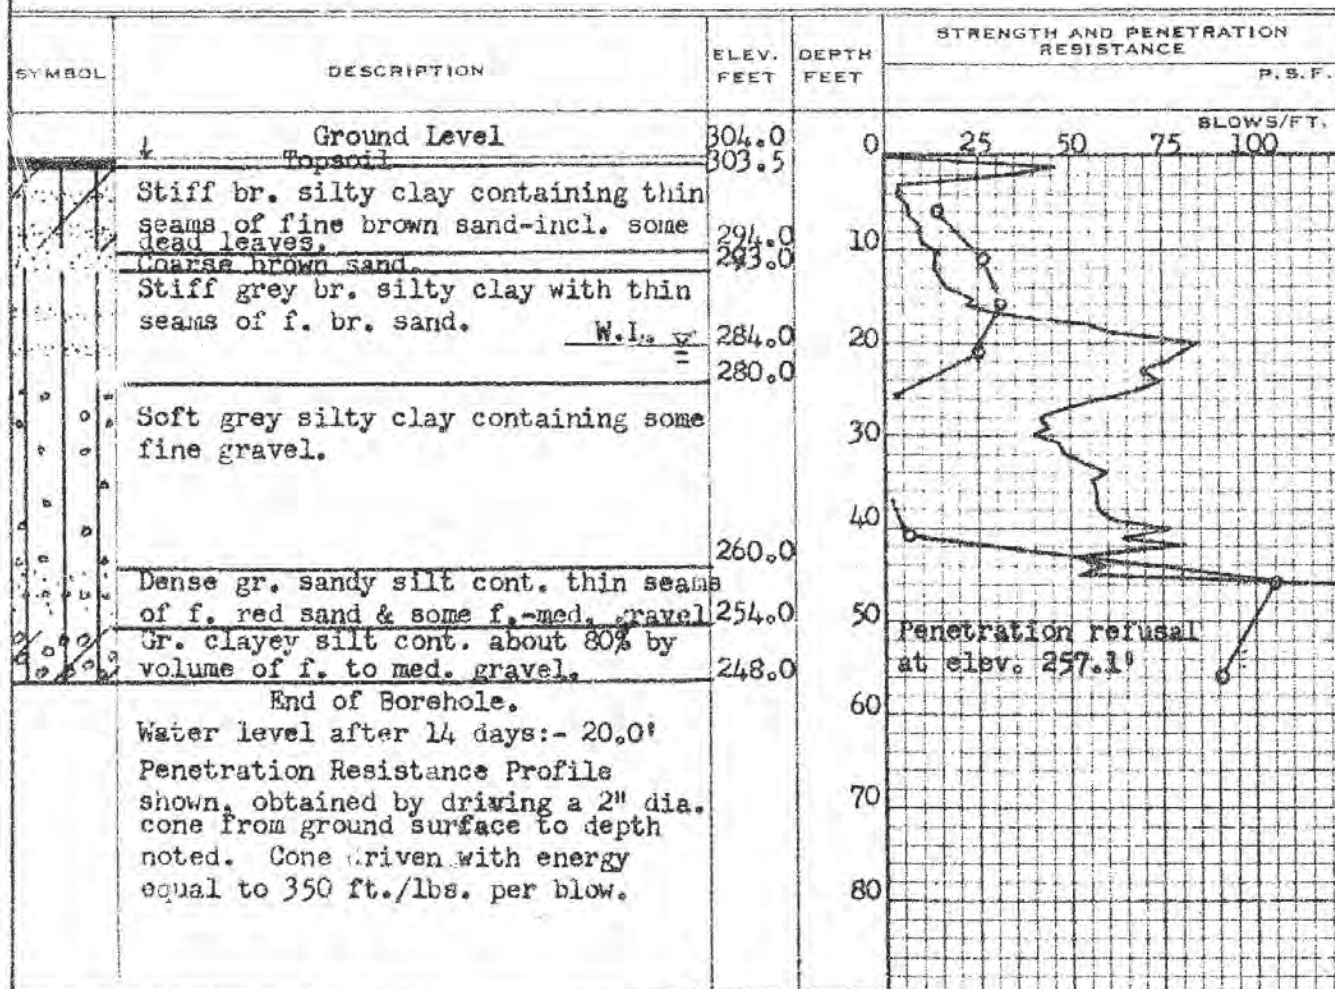 SYMBOL
DESCRIPTION
ELEV.
FEET
DEPTH
FEET
STRENGTH AND PENETRATION
RESISTANCE
P.S.F.
BLOWS/FT.
0 25 50 75 100
Ground Level 304.0
Topsoil 303.5
Stiff br. silty clay containing thin
seams of fine brown sand-incl. some
dead leaves. 294.0
10
Coarse brown sand. 293.0
Stiff grey br. silty clay with thin
seams of f. br. sand.
W.L. 284.0
20
280.0
Soft grey silty clay containing some
fine gravel.
30
40
260.0
Dense gr. sandy silt cont. thin seams
of f. red sand & some f.-med. gravel 254.0
50
Gr. clayey silt cont. about 80% by
volume of f. to med. gravel. 248.0
Penetration refusal
at elev. 257.1'
60
End of Borehole.
Water level after 14 days:- 20.0'
Penetration Resistance Profile
shown, obtained by driving a 2" dia.
cone from ground surface to depth
noted. Cone driven with energy
equal to 350 ft./lbs. per blow.
70
80